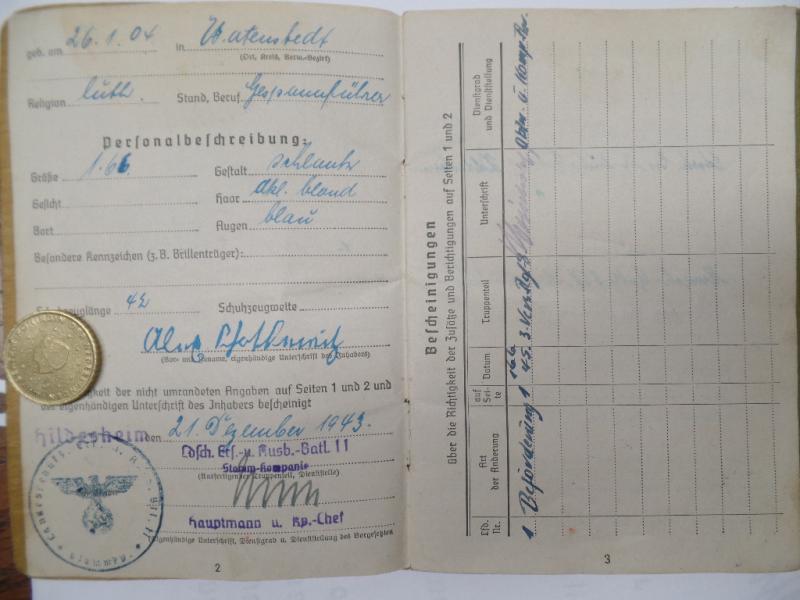 geb. am 26.1.04 in Watenstedt
(Ort, Kreis, Verw.-Bezirk)
Religion luth. Stand, Beruf Gespannführer
Personalbeschreibung:
Größe 1.66 Gestalt schlank
Gesicht Haar dkl. blond
Bart Augen blau
Besondere Kennzeichen (z. B. Brillenträger):
Schuhzeuglänge 42 Schuhzeugweite
(Vor- und Zuname, eigenhändige Unterschrift des Inhabers)
der nicht umrandeten Angaben auf Seiten 1 und 2 und
der eigenhändigen Unterschrift des Inhabers bescheinigt
Hildesheim den 21. Dezember 1943.
Ldsch. Ers.- u. Ausb.-Batl. 11
Stamm-Kompanie
(Ausfertigender Truppenteil, Dienststelle)
Hauptmann u. Kp.-Chef
(Eigenhändige Unterschrift, Dienstgrad u. Dienststellung des Vorgesetzten)
2
Bescheinigungen
über die Richtigkeit der Zusätze und Berichtigungen auf Seiten 1 und 2
Lfd. Nr.
Art der Änderung
auf Seite
Datum
Truppenteil
Unterschrift
Dienstgrad und Dienststellung
1 Beförderung 1
3